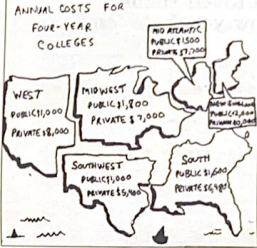 ANNUAL COSTS FOR
FOUR-YEAR
COLLEGES
MID ATLANTIC
PUBLIC $1,500
PRIVATE $7,700
WEST
PUBLIC $1,000
PRIVATE $8,000
MIDWEST
PUBLIC $1,800
PRIVATE $7,000
NEW ENGLAND
PUBLIC $2,000
PRIVATE
SOUTHWEST
PUBLIC $1,000
PRIVATE $5,400
SOUTH
PUBLIC $1,600
PRIVATE $6,980